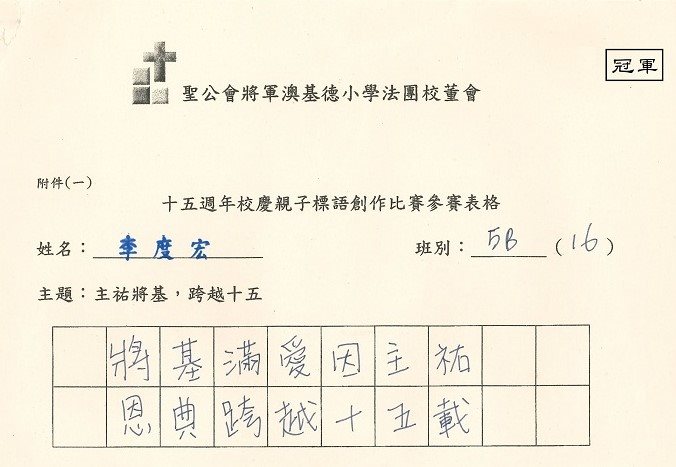 冠軍
聖公會將軍澳基德小學法團校董會
附件(一)
十五週年校慶親子標語創作比賽參賽表格
姓名：李度宏 班別：5B (16)
主題：主祐將基，跨越十五
將基滿愛因主祐
恩典跨越十五載